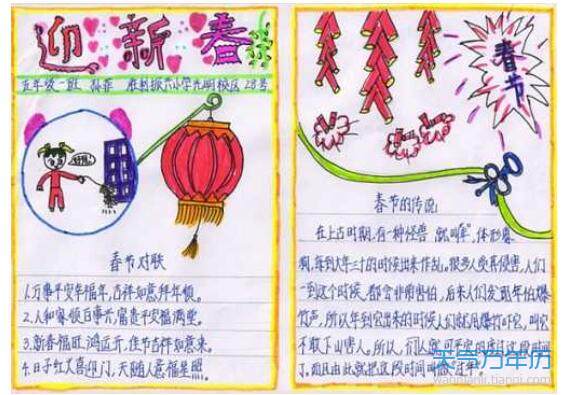 迎新春
五年级一班 小学光明校区 28号
春节对联
1.万事平安幸福年,吉祥如意拜年顿。
2.人和家顺百事兴,富贵平安福满堂。
3.新春福旺鸿运开,佳节吉祥如意来。
4.日子红火喜迎门,天随人意福星照。
春节
春节的传说
在上古时期,有一种怪兽,就叫"年",体形
猛,每到大年三十的时候出来作乱。很多人受其侵害,人们
一到这个时候,都会非常害怕,后来人们发现年怕爆
竹声,所以年到它出来的时候人们就用爆竹吓它,叫它
不敢下山害人。所以,人们就可平安的度过这段时间
了,而且由此就把这段时间叫做过年。
万年历
wannianli.tianqi.com